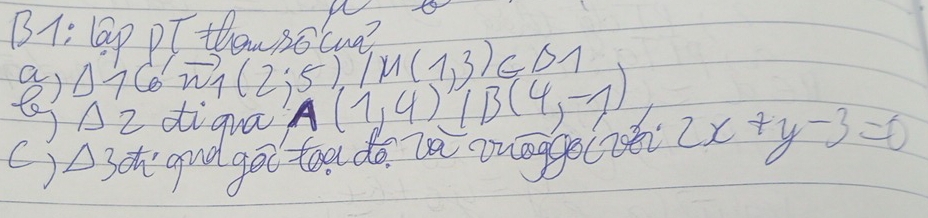 B1: lập PT tham số của
a) Δ1 có n⃗1 (2;5) / M(1,3) ∈ Δ1
b) Δ2 đi qua A (1,4) / B(4,-1)
c) Δ3 đi qua gốc toạ độ và vuông góc với 2x+y-3=0